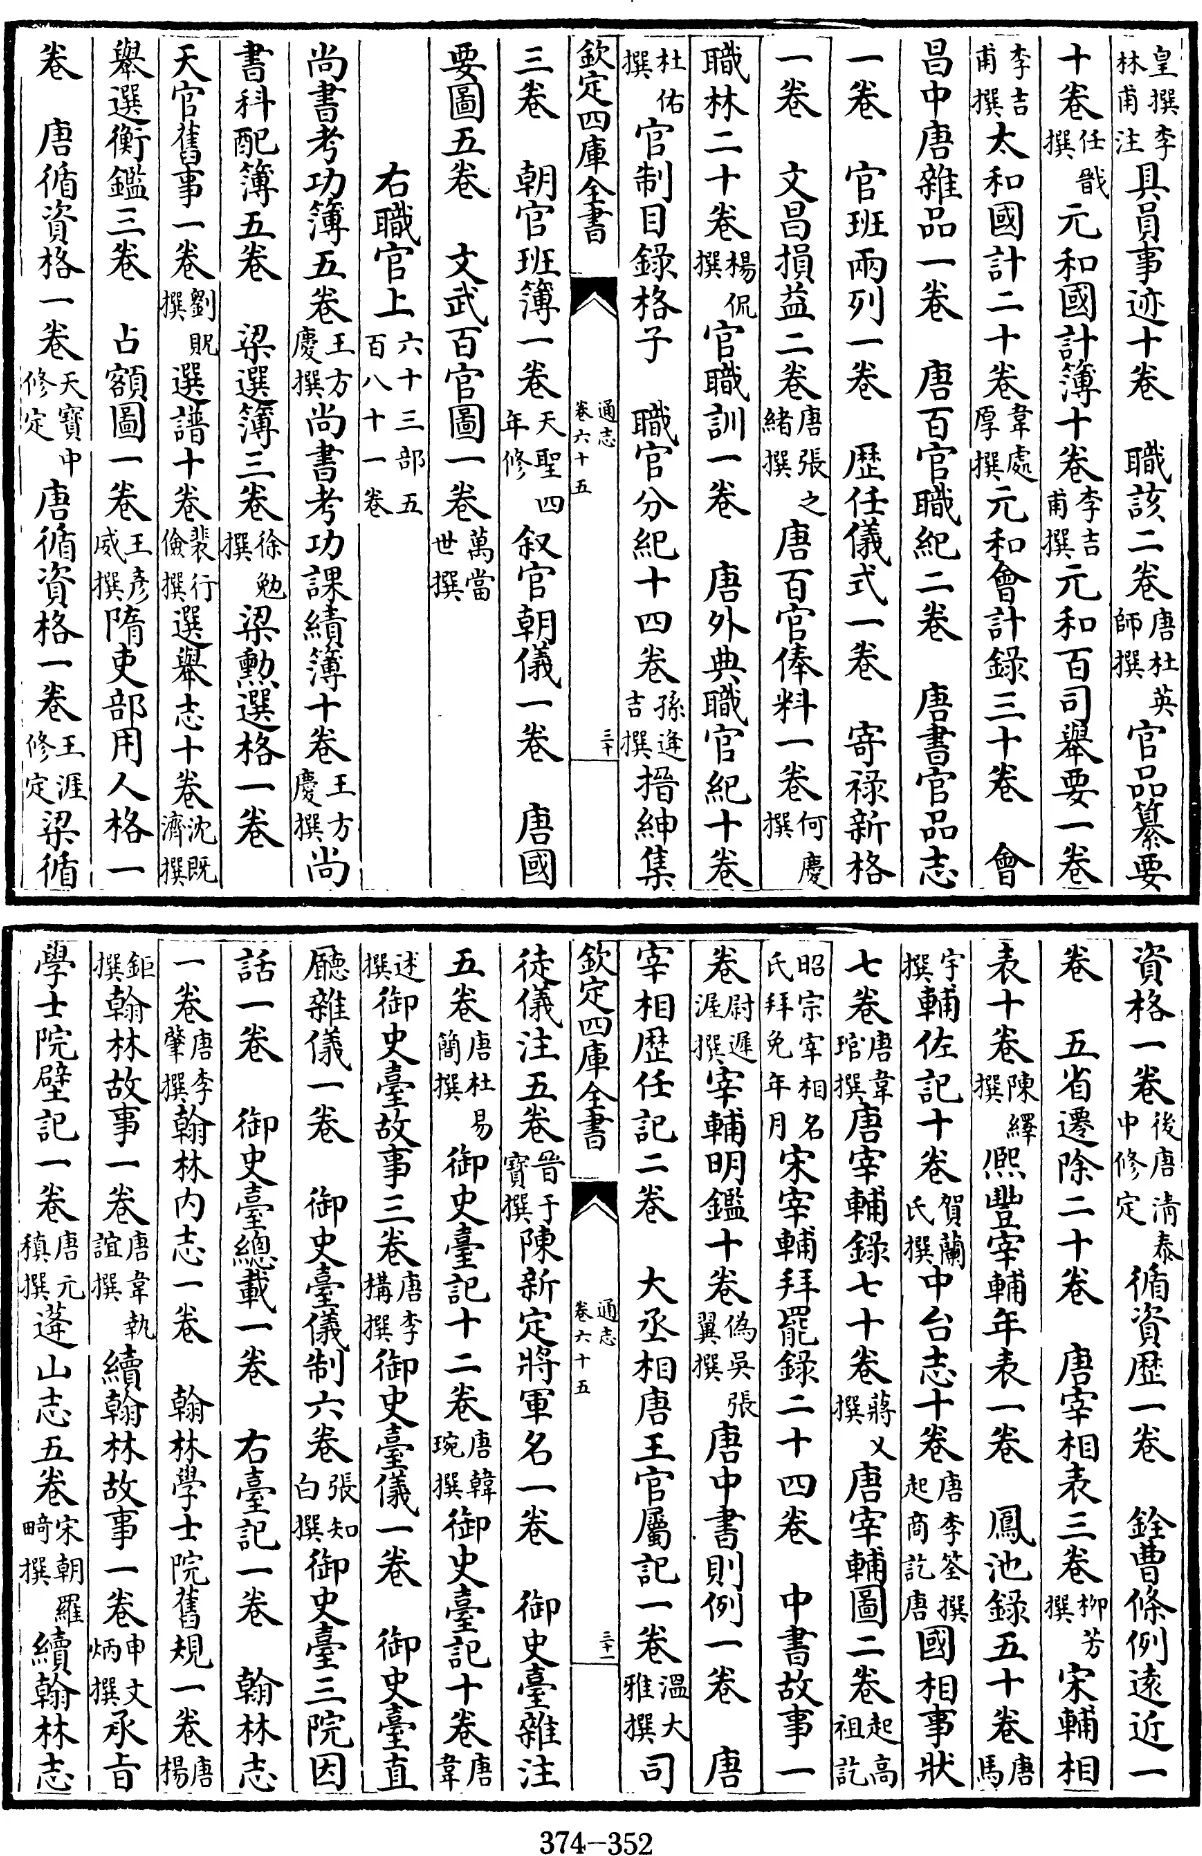 皇撰李林甫注具員事迹十卷　職該二卷唐杜英師撰官品纂要
十卷任戩撰元和國計簿十卷李吉甫撰元和百司舉要一卷
李吉甫撰太和國計二十卷韋處厚撰元和會計錄三十卷　會
昌中唐雜品一卷　唐百官職紀二卷　唐書官品志
一卷　官班兩列一卷　歷任儀式一卷　寄祿新格
一卷　文昌損益二卷唐張之緒撰唐百官俸料一卷何慶撰
職林二十卷楊侃撰官職訓一卷　唐外典職官紀十卷
杜佑撰官制目錄格子　職官分紀十四卷孫逢吉撰搢紳集
欽定四庫全書　通志卷六十五　三十
三卷　朝官班簿一卷天聖四年修叙官朝儀一卷　唐國
要圖五卷　文武百官圖一卷萬當世撰
右職官上六十三部五百八十一卷
尚書考功簿五卷王方慶撰尚書考功課績簿十卷王方慶撰尚
書科配簿五卷　梁選簿三卷徐勉撰梁勳選格一卷
天官舊事一卷劉貺撰選譜十卷裴行儉撰選舉志十卷沈既濟撰
舉選衡鑑三卷　占額圖一卷王彥威撰隋吏部用人格一
卷　唐循資格一卷天寶中修定唐循資格一卷王涯修定梁循
資格一卷後唐清泰中修定循資歷一卷　銓曹條例遠近一
卷　五省遷除二十卷　唐宰相表三卷柳芳撰宋輔相
表十卷陳繹撰熙豐宰輔年表一卷　鳳池錄五十卷唐馬
宇撰輔佐記十卷賀蘭氏撰中台志十卷唐李筌撰起商訖唐國相事狀
七卷唐韋琯撰唐宰輔錄七十卷蔣乂撰唐宰輔圖二卷起高祖訖
昭宗宰相名氏拜免年月宋宰輔拜罷錄二十四卷　中書故事一
卷尉遲渥撰宰輔明鑑十卷偽吳張翼撰唐中書則例一卷　唐
宰相歷任記二卷　大丞相唐王官屬記一卷溫大雅撰司
欽定四庫全書　通志卷六十五　三十一
徒儀注五卷晉于寶撰陳新定將軍名一卷　御史臺雜注
五卷唐杜易簡撰御史臺記十二卷唐韓琬撰御史臺記十卷唐韋
述撰御史臺故事三卷唐李構撰御史臺儀一卷　御史臺直
廳雜儀一卷　御史臺儀制六卷張知白撰御史臺三院因
話一卷　御史臺總載一卷　右臺記一卷　翰林志
一卷唐李肇撰翰林內志一卷　翰林學士院舊規一卷唐楊
鉅撰翰林故事一卷唐韋執誼撰續翰林故事一卷申文炳撰承旨
學士院壁記一卷唐元稹撰蓬山志五卷宋朝羅畸撰續翰林志
374-352